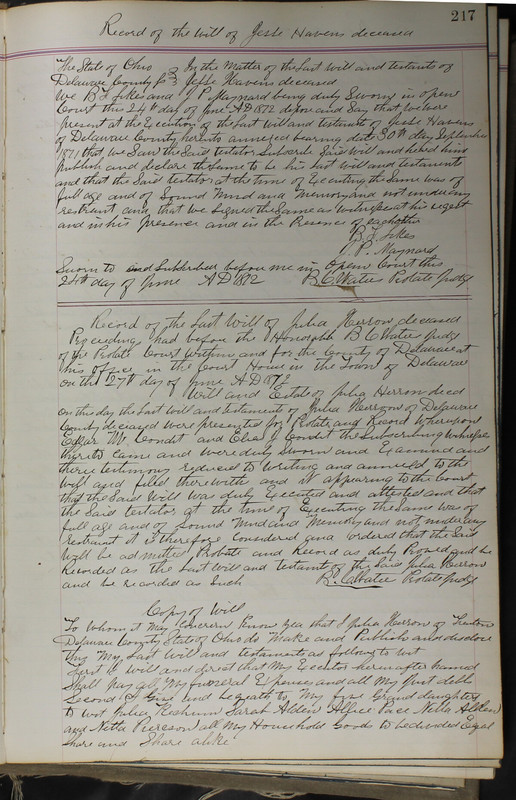 217
Record of the Will of Jesse Havens deceased
The State of Ohio In the Matter of the Last will and testaments of
Delaware County SS Jesse Havens deceased
We B F Likes and J. P. Maynard being duly Sworn in open
Court this 24th day of June AD 1872 depose and Say that we were
present at the Execution of the Last will and testament of Jesse Havens
of Delaware County hereto annexed bearing date 30th day September
1871 that we Saw the Said testator Subscribe Said will and heard him
publish and declare the Same to be his last will and testaments
and that the Said testator at the time of Executing the Same was of
full age and of Sound Mind and Memory and not under any
restraint and that we Signed the Same as witnesses at his request
and in his presence and in the Presence of each other
B. F. Likes
J. P. Maynard
Sworn to and Subscribed before me in Open Court this
24th day of June AD 1872 B. C. Waters Probate Judge
Record of the Last Will of Julia Herron deceased
Proceedings had before the Honorable B C Waters Judge
of the Probate Court within and for the County of Delaware at
his office in the Court House in the Town of Delaware
on the 27th day of June AD 1872
Will and Estate of Julia Herron died
On this day the Last will and testaments of Julia Herron of Delaware
County deceased were presented for Probate and Record Whereupon
Edgar W. Condit and J Condit the Subscribing witnesses
thereto came and were duly Sworn and Examined and
there testimony reduced to Writing and annexed to the
Will and filed therewith and it appearing to the Court
that the Said Will was duly Executed and attested and that
the Said testator at the time of Executing the Same was of
full age and of Sound Mind and Memory and not under any
restraint it is therefore Considered and ordered that the Said
Will be admitted Probate and Record as duly Proved and be
Recorded as the Last will and testaments of the Said Julia Herron
and be recorded as Such B. C. Waters Probate Judge
Copy of Will
To whom it May concern Know yea that I Julia Herron of Trenton
Delaware County State of Ohio do Make and Publish and declare
this My Last Will and testament as follows to wit
first I will and direct that My Executor hereinafter named
Shall pay all My funeral Expenses and all My Just debts
Second I Give and bequeath to My five Grand daughters
to wit Julia Sarah Alden Allice Pace Nella Alden
and Netta Pierson all My Household Goods to be divided Equal
Share and Share alike